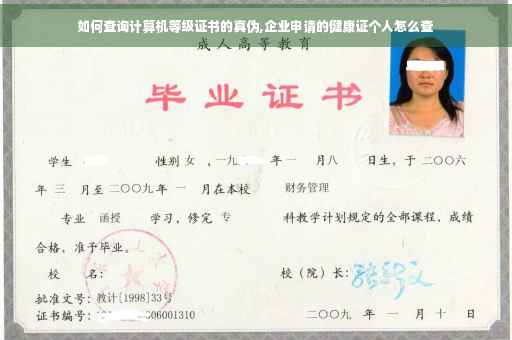 如何查询计算机等级证书的真伪,企业申请的健康证个人怎么查
成人高等教育
毕业证书
学生 性别 女 ，一九 年 一 月八 日生，于 二〇〇六
年 三 月至 二〇〇九 年 一 月在本校 财务管理
专业 函授 学习，修完 专 科教学计划规定的全部课程，成绩
合格，准予毕业。
校 名： 校（院）长：
批准文号：教计[1998]33号
证书编号： 06001310 二〇〇九 年 一 月 十 日